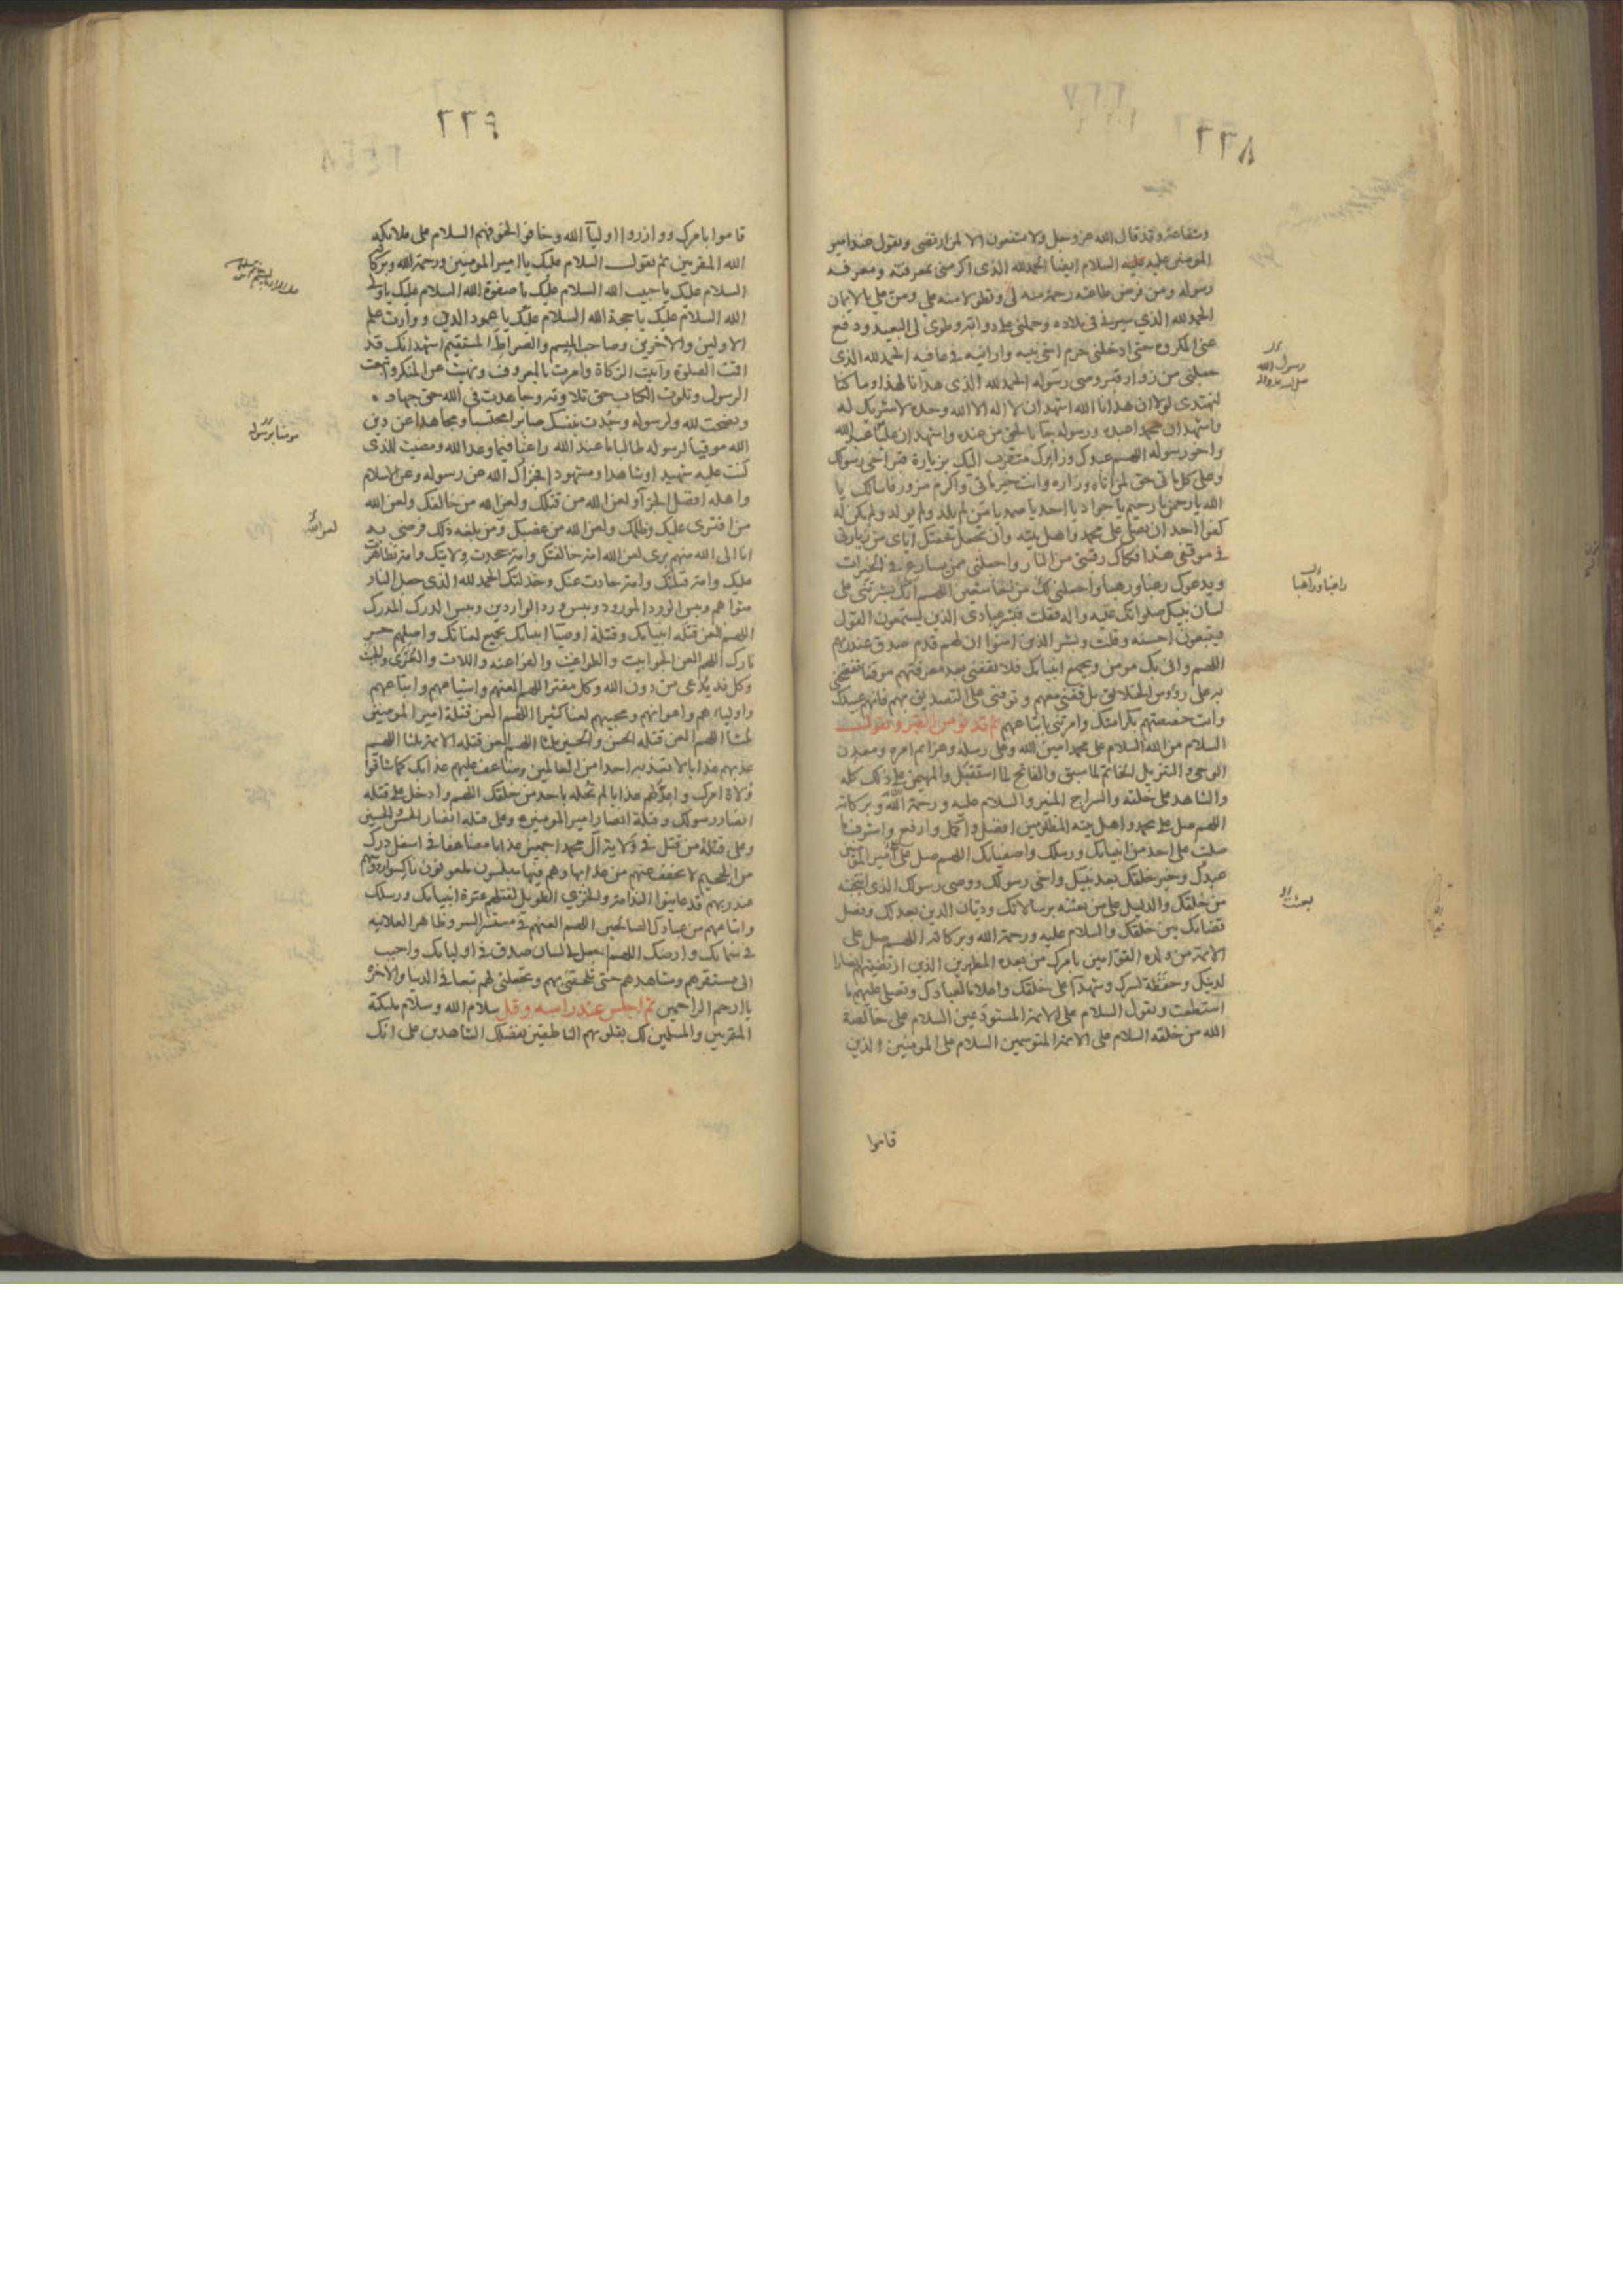 ٢٢٨
وشفاعته وقد قال الله عز وجل ولا يشفعون الا لمن ارتضى ويقول عند امير
المومنين عليه السلام ايضا الحمد لله الذى اكرمنى بمعرفته ومعرفة
رسوله ومن فرض طاعته رحمة منه لى وتطولا منه على ومن على بالايمان
الحمد لله الذي سيرنى فى بلاده وحملنى على دوابه وطوى لى البعيد ودفع
عنى المكروه حتى ادخلنى حرم اخى نبيه وارانيه فى عافيه الحمد لله الذى
جعلنى من زوار قبر وصى رسوله الحمد لله الذى هدانا لهذا وما كنا
رسول الله
صلى الله عليه واله
لنهتدى لولا ان هدانا الله اشهد ان لا اله الا الله وحده لا شريك له
واشهد ان محمدا عبده ورسوله جا بالحق من عنده واشهد ان عليا عبد الله
واخو رسوله اللهم عبدك وزايرك متقرب اليك بزيارة قبر اخى رسولك
وعلى كل ماتى حق لمن اتاه وزاره وانت خير ماتى واكرم مزور فاسالك يا
الله يا رحمن يا رحيم يا جواد يا احد يا صمد يا من لم يلد ولم يولد ولم يكن له
كفوا احد ان تصلى على محمد واهل بيته وان تجعل تحفتك اياى من زيارتى
فى موقفى هذا فكاك رقبتى من النار واجعلنى ممن يسارع فى الخيرات
ويدعوك رغبا ورهبا واجعلنى لك من الخاشعين اللهم انك بشرتنى على
راغبا وراهبا
لسان نبيك صلواتك عليه واله فقلت فبشر عبادى الذين يستمعون القول
فيتبعون احسنه وقلت وبشر الذين امنوا ان لهم قدم صدق عند ربهم
اللهم وانى بك مومن وبجميع انبيايك فلا تقفنى بعد معرفتهم موقفا تفضحنى
به على رؤوس الخلايق بل قفنى معهم وتوفنى على التصديق بهم فانهم عبيدك
وانت خصصتهم بكرامتك وامرتنى باتباعهم ثم تدنو من القبر وتقول
السلام من الله السلام على محمد امين الله وعلى رسله وعزايم امره ومعدن
الوحى والتنزيل الخاتم لما سبق والفاتح لما استقبل والمهيمن على ذلك كله
والشاهد على خلقه والسراج المنير والسلام عليه ورحمة الله وبركاته
اللهم صل على محمد واهل بيته المظلومين افضل واكمل وارفع واشرف ما
صليت على احد من انبيايك ورسلك واصفيايك اللهم صل على امير المومنين
عبدك وخير خلقك بعد نبيك واخى رسولك ووصى رسولك الذى انتجبته
من خلقك والدليل على من بعثته برسالاتك وديان الدين بعدلك وفصل
بعثت
قضائك بين خلقك والسلام عليه ورحمة الله وبركاته اللهم صل على
الائمة من ولده القوامين بامرك من بعده المطهرين الذين ارتضيتهم انصارا
لدينك وحفظة لسرك وشهدآ على خلقك واعلاما لعبادك وتصلى عليهم ما
استطعت وتقول السلام على الائمة المستودعين السلام على خالصة
الله من خلقه السلام على الائمة المتوسمين السلام على المومنين الذين
قاموا
٢٢٩
قاموا بامرك ووازروا اوليآ الله وخافوا لخوفهم السلام على ملائكة
الله المقربين ثم تقول السلام عليك يا امير المومنين ورحمة الله وبركاته
السلام عليك يا حبيب الله السلام عليك يا صفوة الله السلام عليك يا ولى
الله السلام عليك يا حجة الله السلام عليك يا عمود الدين ووارث علم
الاولين والآخرين وصاحب الميسم والصراط المستقيم اشهد انك قد
اقمت الصلوة وآتيت الزكاة وامرت بالمعروف ونهيت عن المنكر واتبعت
الرسول وتلوت الكتاب حق تلاوته وجاهدت فى الله حق جهاده
ونصحت لله ولرسوله وجدت بنفسك صابرا محتسبا ومجاهدا عن دين
مومنا برسوله
الله موقيا لرسوله طالبا ما عند الله راغبا فيما وعد الله ومضيت للذى
كنت عليه شهيدا وشاهدا ومشهودا فجزاك الله عن رسوله وعن الاسلام
واهله افضل الجزآ ولعن الله من قتلك ولعن الله من خالفك ولعن الله
من افترى عليك وظلمك ولعن الله من غصبك ومن بلغه ذلك فرضى به
لعن الله
انا الى الله منهم برى لعن الله امة خالفتك وامة جحدت ولايتك وامة تظاهرت
عليك وامة قتلتك وامة حادت عنك وخذلتك الحمد لله الذى جعل النار
مثواهم وبئس الورد المورود وبئس ورد الواردين وبئس الدرك المدرك
اللهم العن قتلة انبيايك وقتلة اوصيآ انبيايك بجميع لعناتك واصلهم حر
نارك اللهم العن الجوابيت والطواغيت والفراعنه واللات والعزى والجبت
وكل ند يدعى من دون الله وكل مفتر اللهم العنهم واشياعهم واتباعهم
واولياءهم واعوانهم ومحبيهم لعنا كثيرا اللهم العن قتلة امير المومنين
ثلثا اللهم العن قتلة الحسن والحسين ثلثا اللهم العن قتلة الائمة ثلثا اللهم
عذبهم عذابا لا تعذبه احدا من العالمين وضاعف عليهم عذابك كما شاقوا
ولاة امرك واعد لهم عذابا لم تحله باحد من خلقك اللهم وادخل على قتلة
انصار رسولك وقتلة انصار امير المومنين وعلى قتلة انصار الحسن والحسين
وعلى قتلة من قتل فى ولاية آل محمد اجمعين عذابا مضاعفا فى اسفل درك
من الجحيم لا يخفف عنهم من عذابها وهم فيها مبلسون ملعونون ناكسوا رؤسهم
عند ربهم قد عاينوا الندامة والخزى الطويل لقتلهم عترة انبيايك ورسلك
واتباعهم من عبادك الصالحين اللهم العنهم فى مستسر السر وظاهر العلانيه
فى سمايك وارضك اللهم اجعل لى لسان صدق فى اوليايك واحبب
الى مستقرهم ومشاهدهم حتى تلحقنى بهم وتجعلنى لهم تبعا فى الدنيا والاخره
يا ارحم الراحمين ثم اجلس عند راسه وقل سلام الله وسلام ملئكته
المقربين والمسلمين لك بقلوبهم الناطقين بفضلك الشاهدين على انك